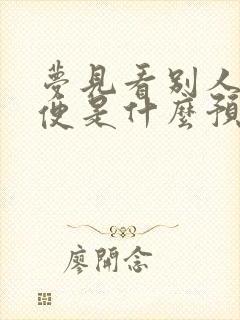 夢見看別人
便是什麼預
廖開念